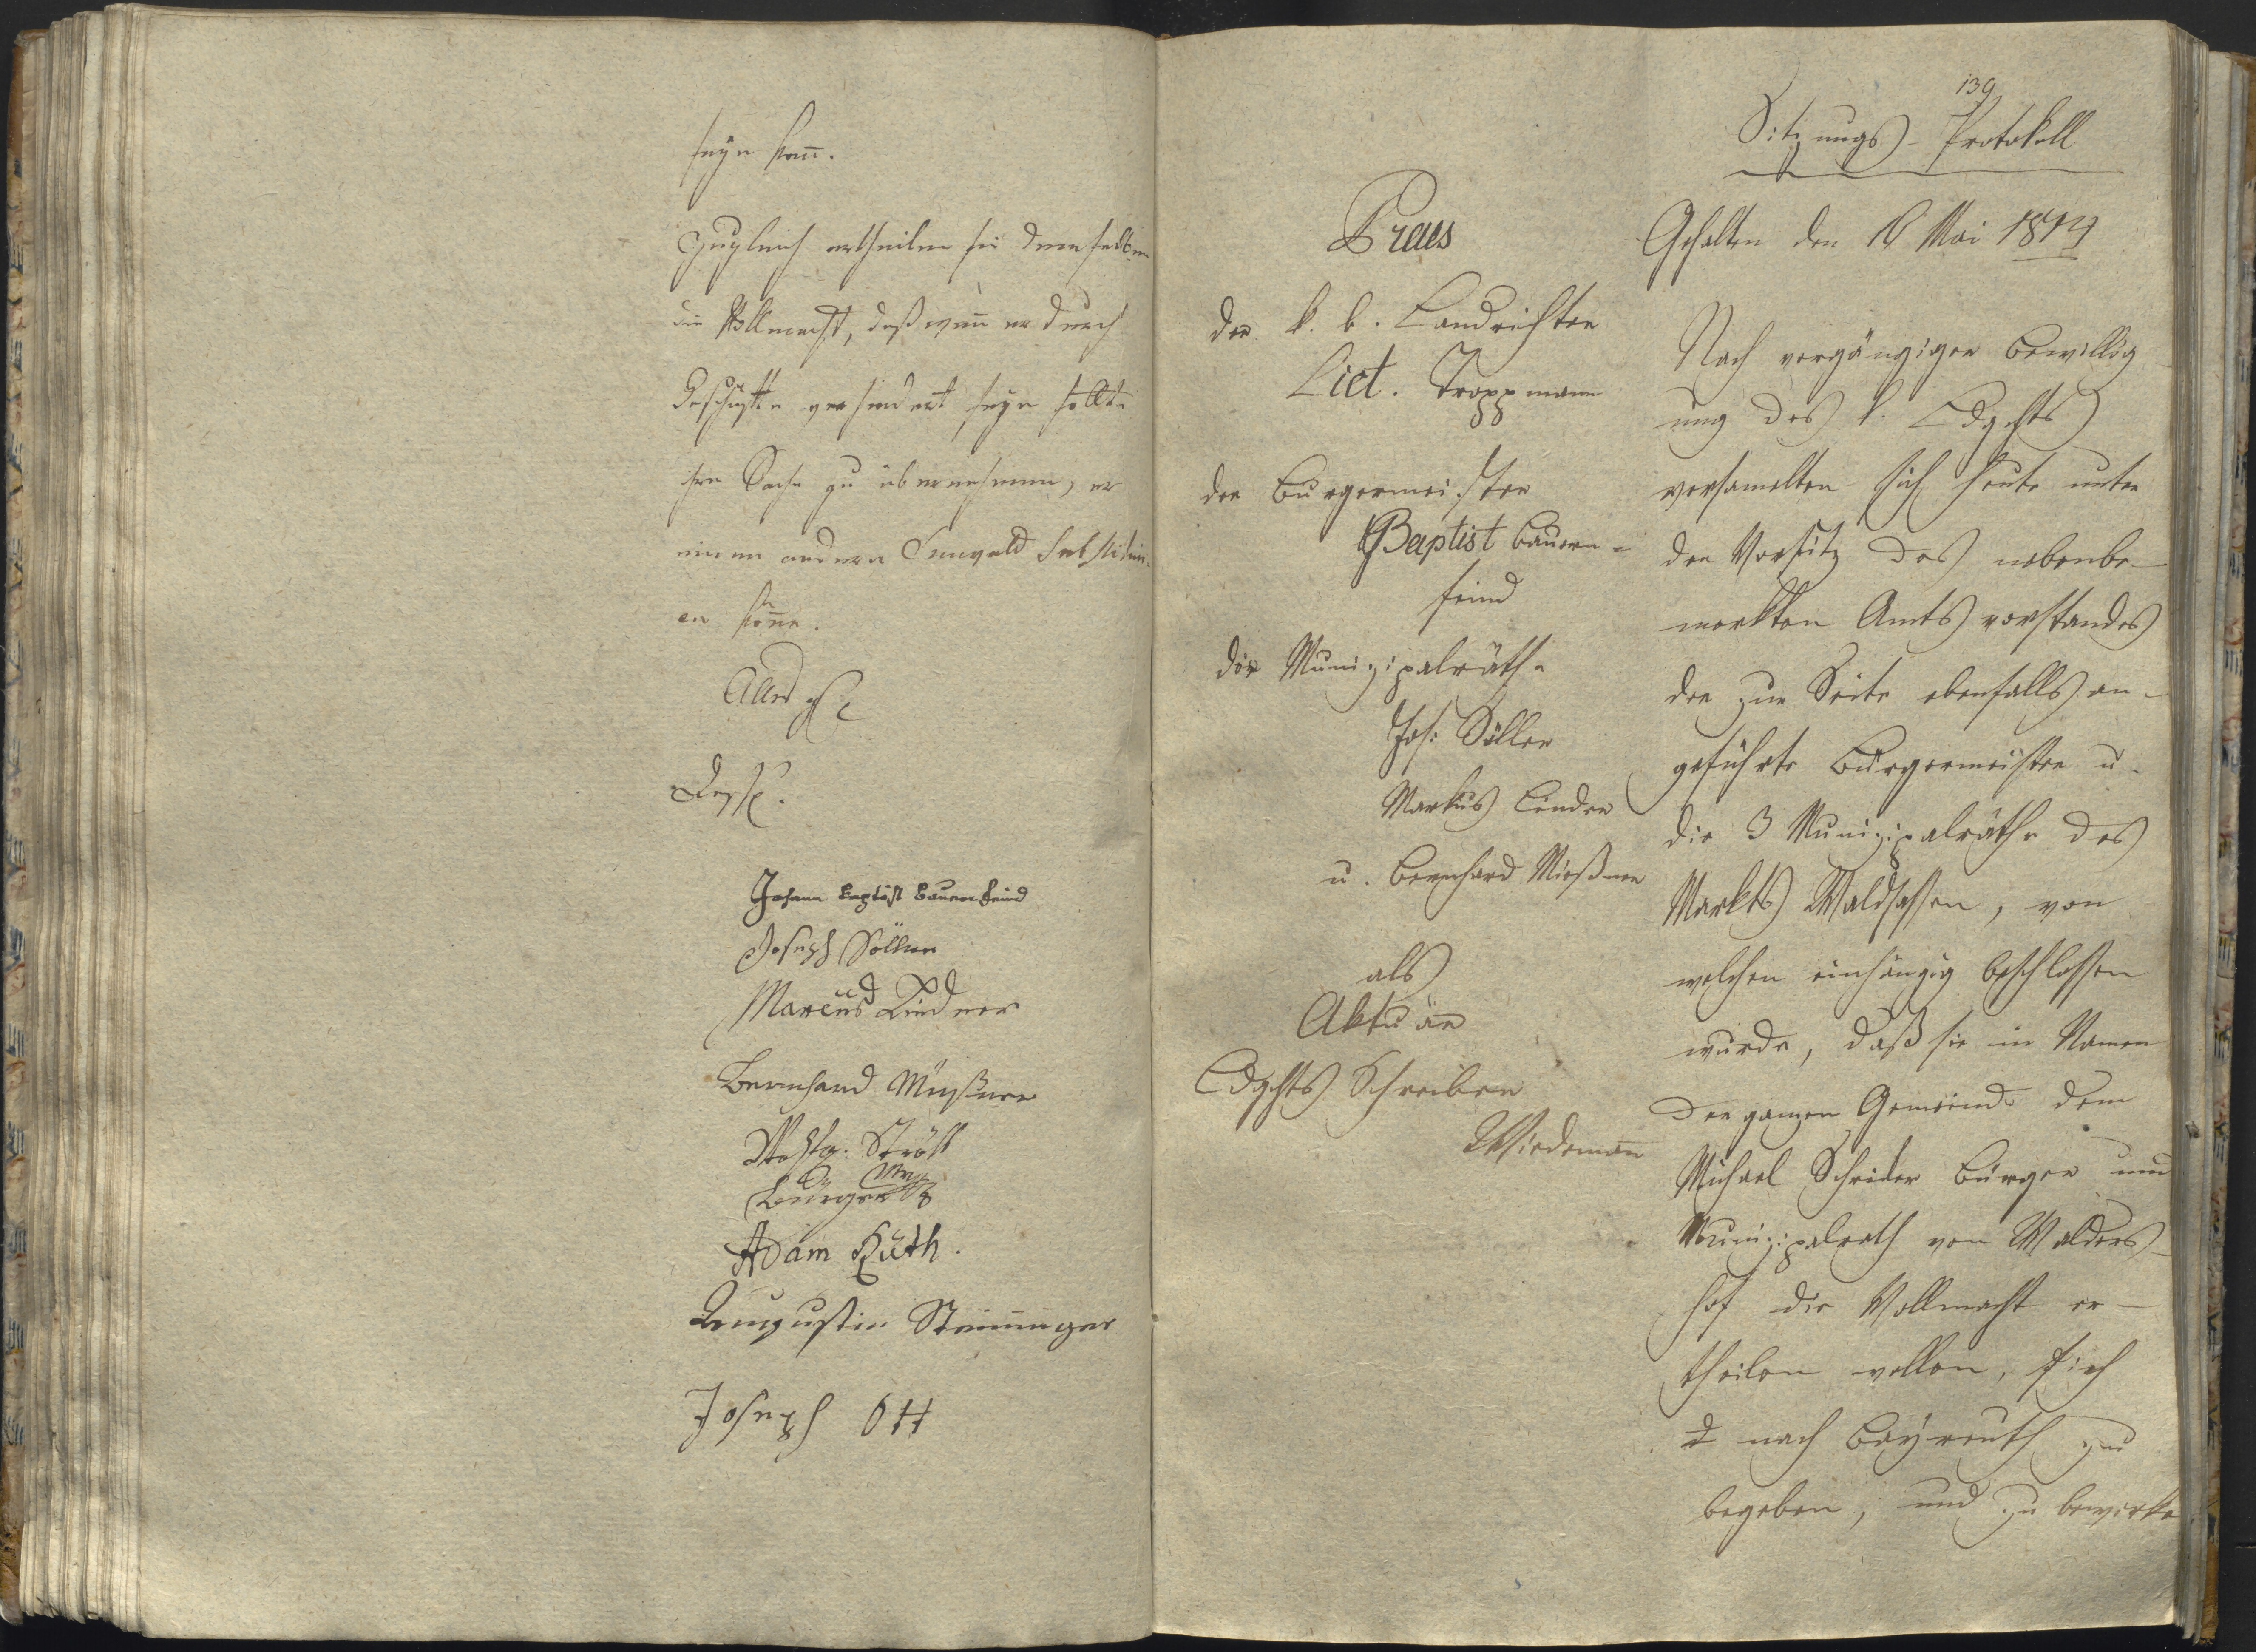 seÿn kañ.
Zugleich ertheilen sie demselben
die Vollmacht, daß wen̄ er durch
Geschäfte verhindert seÿn sollte
ihre Sache zu übernehmen, er
einen andern Anwald substitui-
en kön̄e.
Johann Baptist Bauernfeind
Joseph Söllner
Marcus Lindner
Bernhard Meißner
Adam Huth.
Augustin Steininger
Joseph Ott
139
Sitzungs-Protokoll
Gehalten den Mai 1814
Praes
der k. b. Landrichter
Lict. Troppmann
der Burgermeister
Baptist Bauern-
feind
die Munizipalräthe
Jos: Söller
Markus Linder
u. Bernhard Mießner
als
Aktuar
Ldgchts Schreiber
Wiedemañ
Nach vorgängiger Bewillig
ung des k. Ldgchts
versamelten sich heute unter
den Vorsitz des nebenbe-
merkten Amtsvorstandes
der zur Seite ebenfalls an-
geführte Burgermeister u.
die 3 Munizipalräthe des
Markts Waldsassen, von
welchen einhängig beschlossen
wurde, daß sie in Namen
der ganzen Gemeinde dem
Michael Schrider Bürger und
Munizipalrath von Walders-
hof die Vollmacht er-
theilen wollen, sich
nach Bayreuth zu
begeben, und zu bewirke